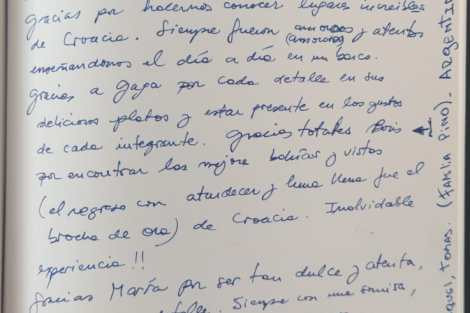 gracias por hacernos conocer lugares increíbles
de Croacia. Siempre fueron amorosos (amorosos) y atentos
enseñandonos el día a día en un barco.
gracias a gaga por cada detalle en sus
deliciosos platos y estar presente en los gustos
de cada integrante. gracias totales Boris
por encontrar las mejores bahías y vistas
(el regreso con atardecer y luna llena fue el
broche de oro) de Croacia. Inolvidable
experiencia!!
gracias María por ser tan dulce y atenta,
Siempre con una sonrisa,
Tomas. (Familia Pino). ARGENTIN